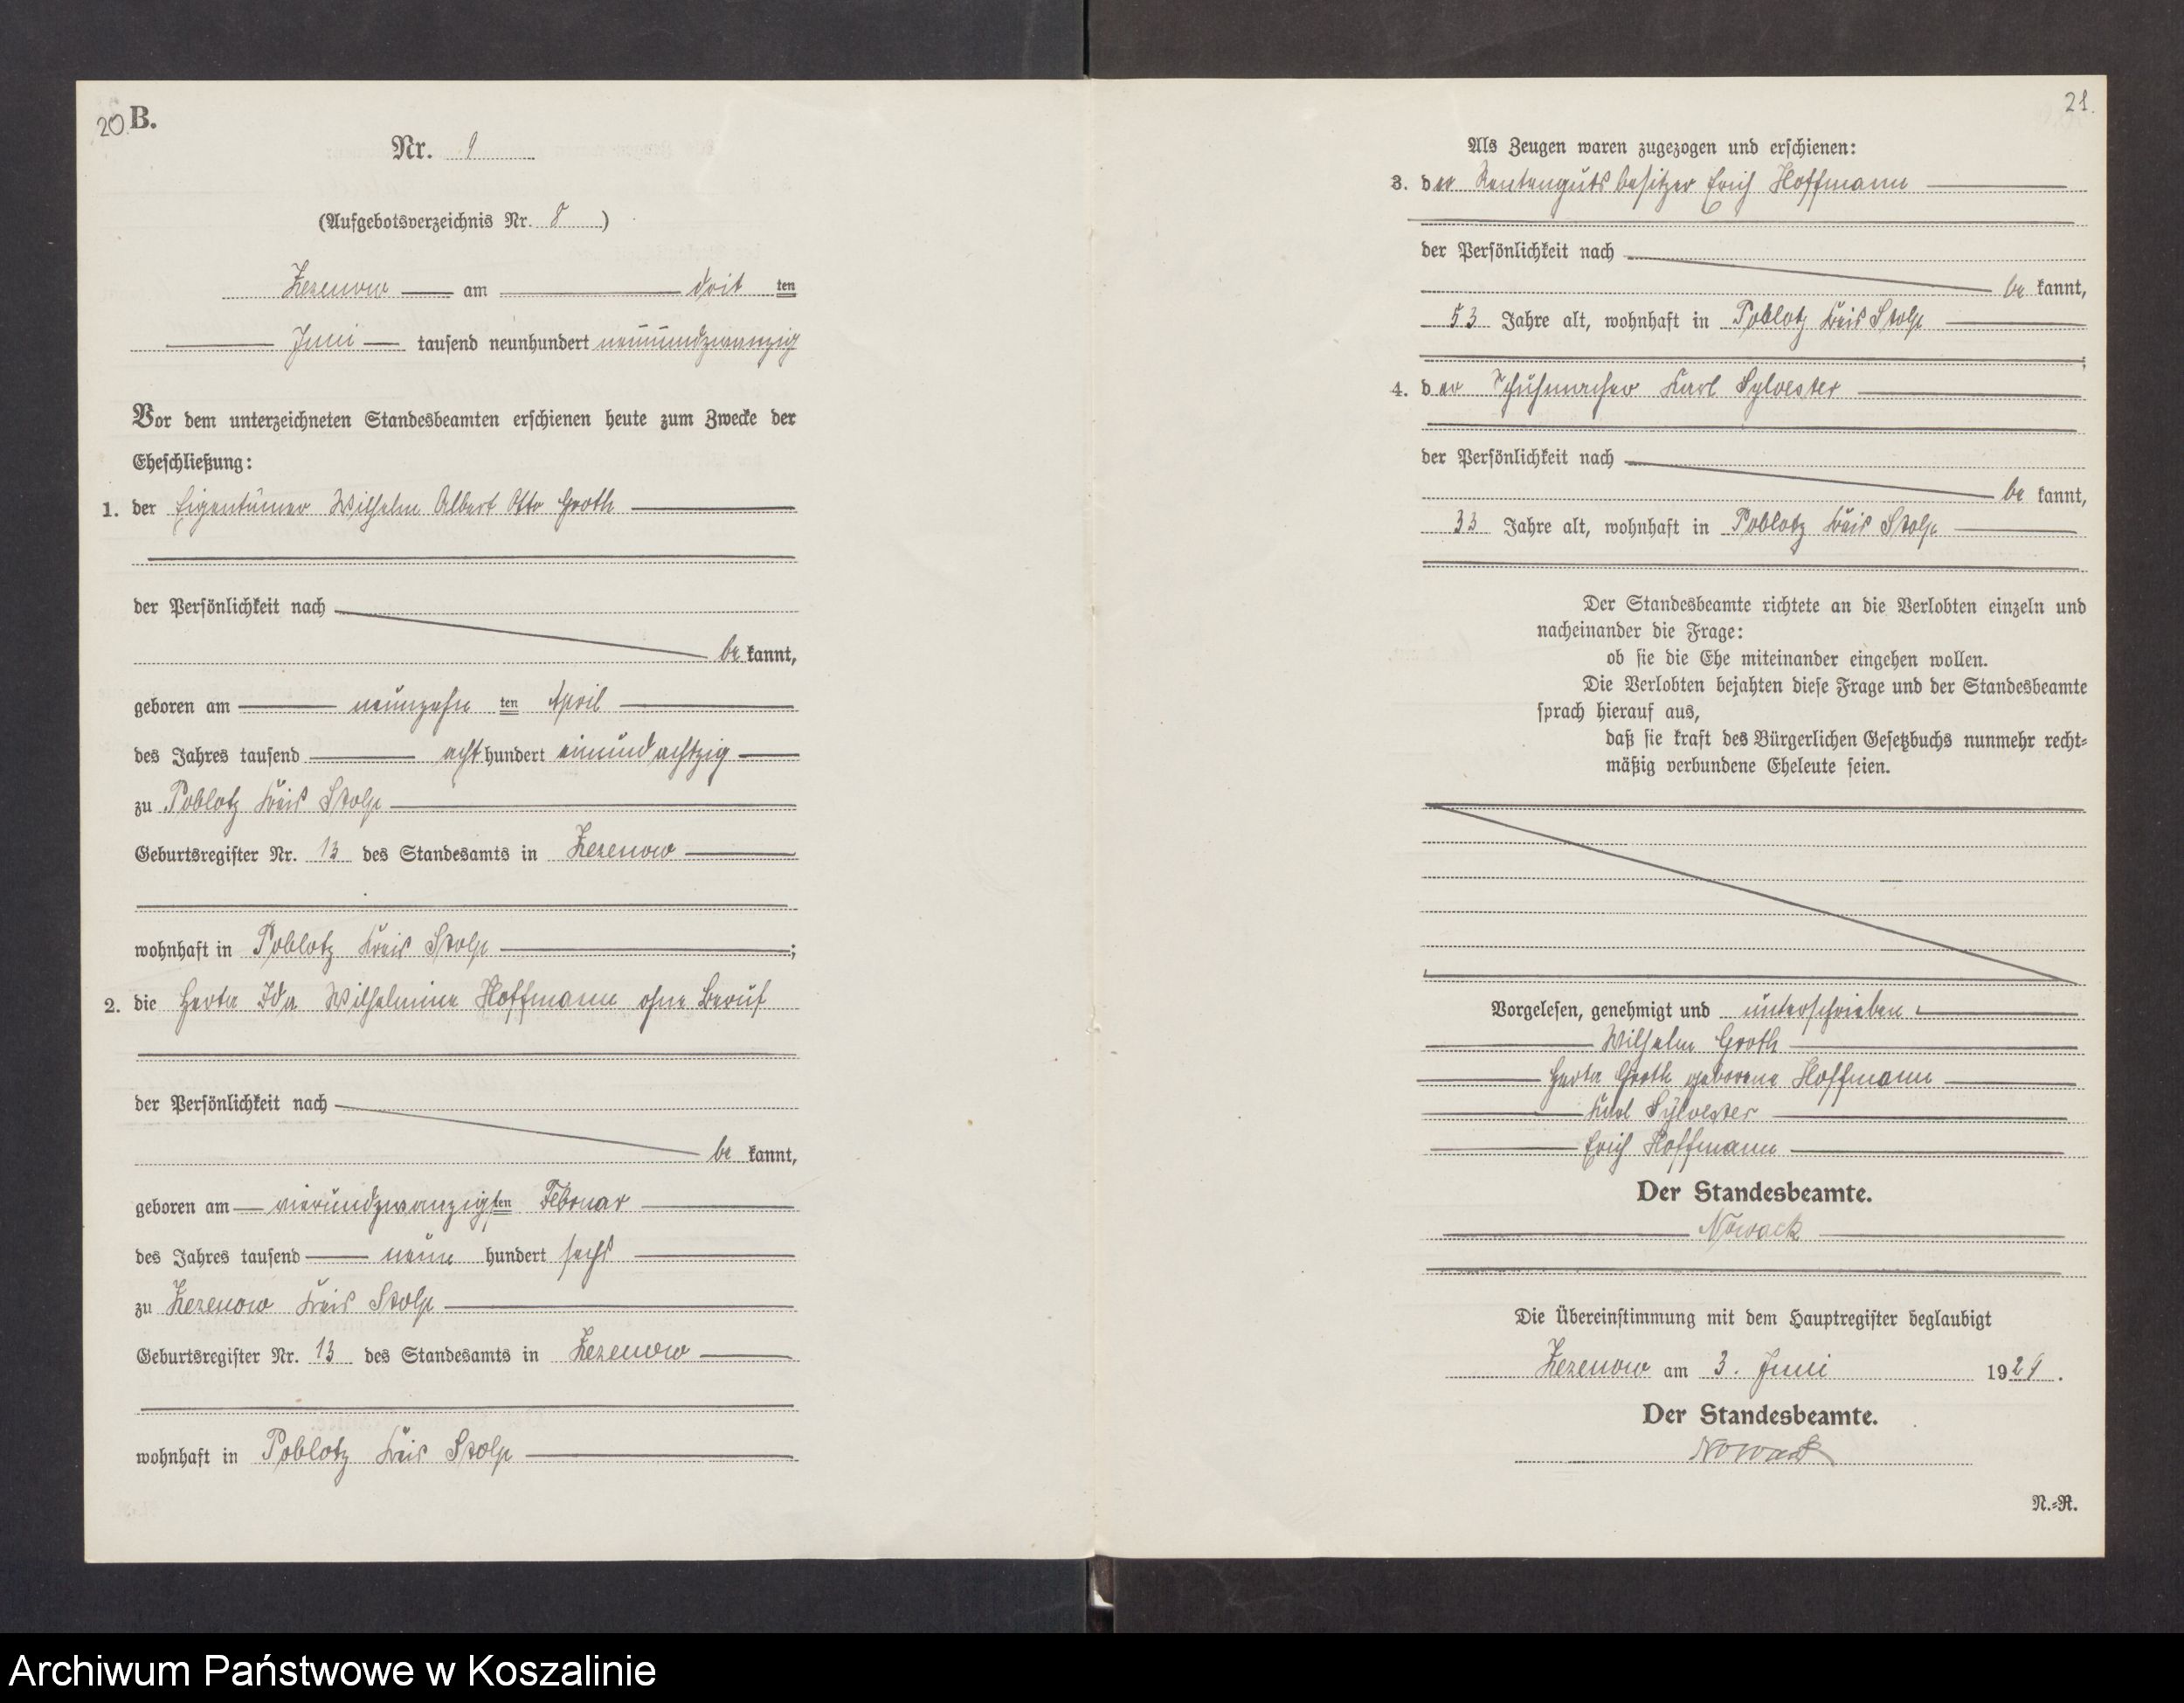 20 B.
Nr. 9
(Aufgebotsverzeichnis Nr. 8)
Zezenow am drit ten
Juni tausend neunhundert neunundzwanzig
Vor dem unterzeichneten Standesbeamten erschienen heute zum Zwecke der
Eheschließung:
1. der Eigentümer Wilhelm Albert Otto Groth
der Persönlichkeit nach
be kannt,
geboren am neunzehn ten April
des Jahres tausend acht hundert einundachtzig
zu Poblotz Kreis Stolp
Geburtsregister Nr. 13 des Standesamts in Zezenow
wohnhaft in Poblotz Kreis Stolp ;
2. die Herta Ida Wilhelmine Hoffmann ohne Beruf
der Persönlichkeit nach
be kannt,
geboren am vierundzwanzigsten Februar
des Jahres tausend neun hundert sechs
zu Zezenow Kreis Stolp
Geburtsregister Nr. 13 des Standesamts in Zezenow
wohnhaft in Poblotz Kreis Stolp
21.
Als Zeugen waren zugezogen und erschienen:
3. der Rentengutsbesitzer Erich Hoffmann
der Persönlichkeit nach
be kannt,
53 Jahre alt, wohnhaft in Poblotz Kreis Stolp
;
4. der Schuhmacher Karl Sylvester
der Persönlichkeit nach
be kannt,
33 Jahre alt, wohnhaft in Poblotz Kreis Stolp
Der Standesbeamte richtete an die Verlobten einzeln und
nacheinander die Frage:
ob sie die Ehe miteinander eingehen wollen.
Die Verlobten bejahten diese Frage und der Standesbeamte
sprach hierauf aus,
daß sie kraft des Bürgerlichen Gesetzbuchs nunmehr recht-
mäßig verbundene Eheleute seien.
Vorgelesen, genehmigt und unterschrieben
Wilhelm Groth
Herta Groth geborene Hoffmann
Karl Sylvester
Erich Hoffmann
Der Standesbeamte.
Nowack
Die Übereinstimmung mit dem Hauptregister beglaubigt
Zezenow am 3. Juni 1929.
Der Standesbeamte.
Nowack
N.-R.
Archiwum Państwowe w Koszalinie